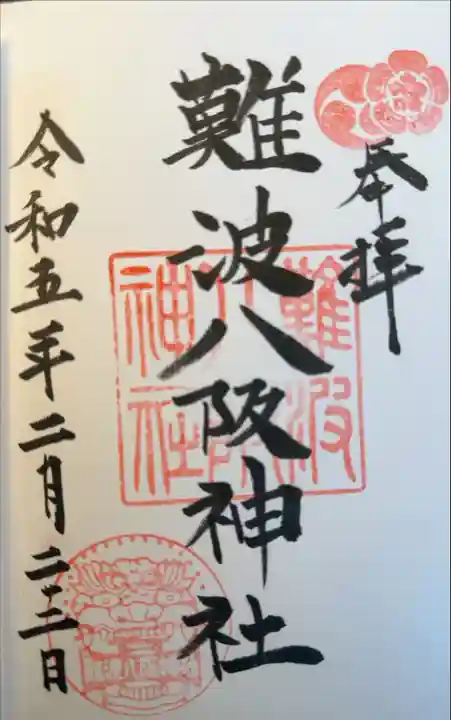 奉拝
難波八阪神社
令和五年二月二三日
難波
八阪
神社